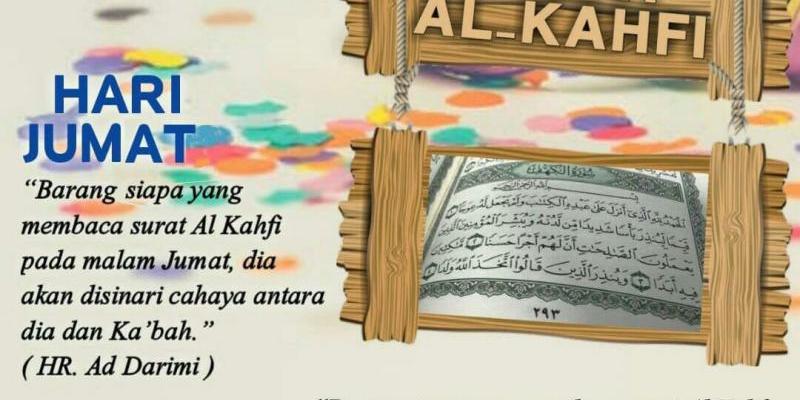 AL-KAHFI
HARI
JUMAT
“Barang siapa yang
membaca surat Al Kahfi
pada malam Jumat, dia
akan disinari cahaya antara
dia dan Ka’bah.”
( HR. Ad Darimi )
سورة الكهف
بسم الله الرحمن الرحيم
الحمد لله الذي أنزل على عبده الكتاب ولم يجعل له عوجا ١
قيما لينذر بأسا شديدا من لدنه ويبشر المؤمنين الذين
يعملون الصالحات أن لهم أجرا حسنا ٢ ماكثين
فيه أبدا ٣ وينذر الذين قالوا اتخذ الله ولدا ٤
٢٩٣